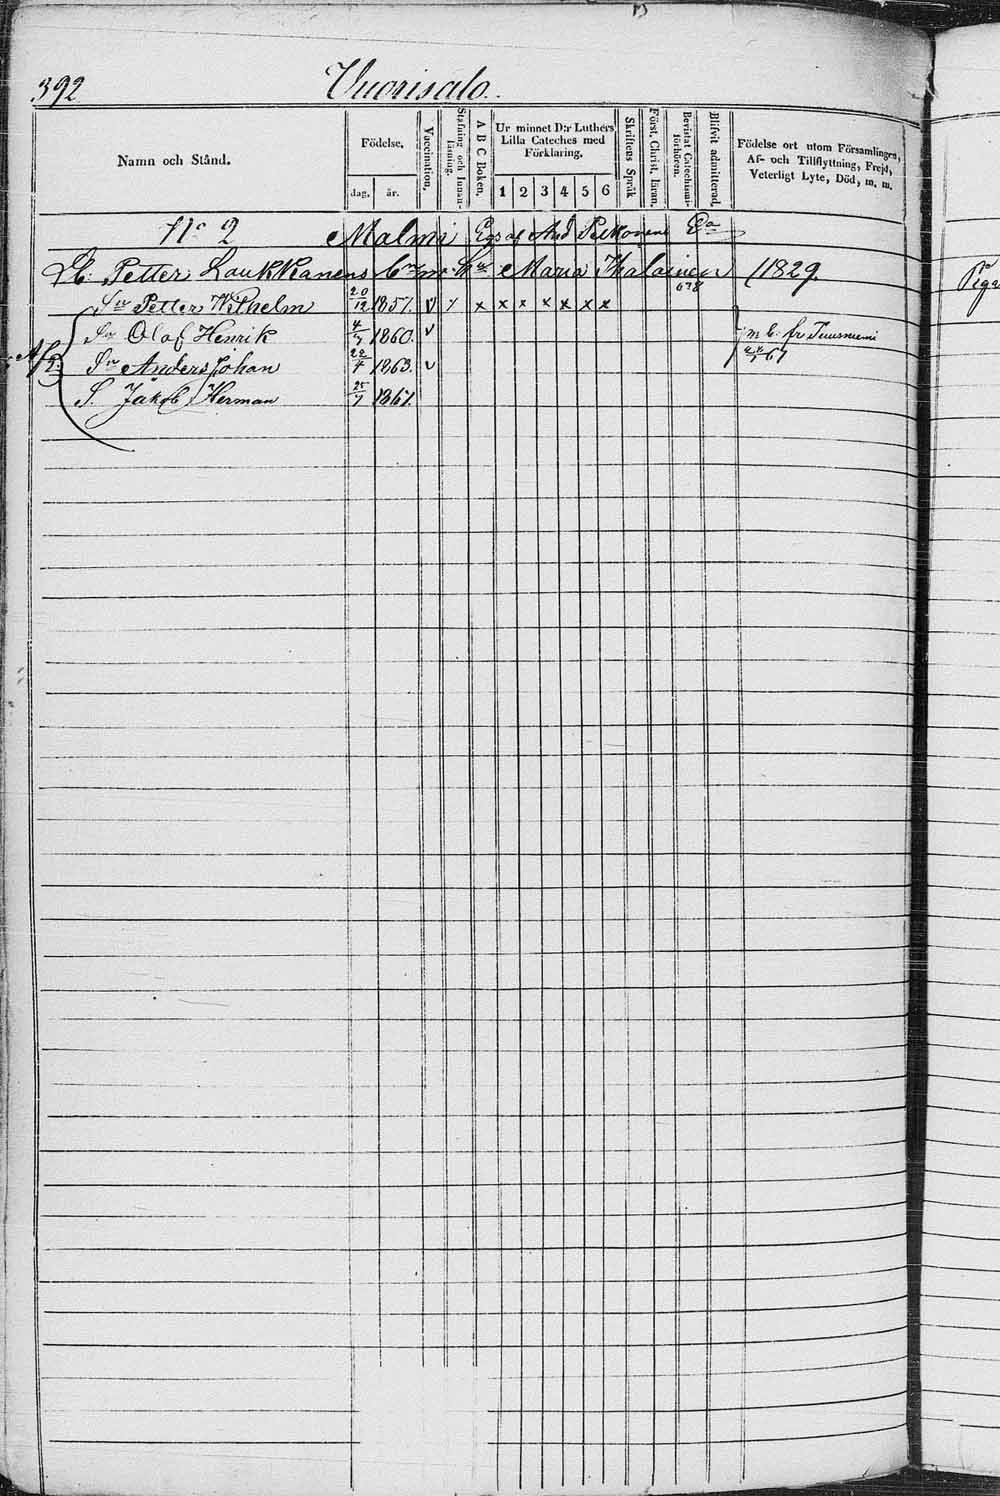 392 Vuorisalo.
Namn och Stånd. Födelse, dag. år. Vaccination. Stafning och Innan-läsning. A B C Boken. Ur minnet D:r Luthers Lilla Cateches med Förklaring. 1 2 3 4 5 6 Skriftens Språk Först. Christ. läran. Bevistat Catechismi-förhören. Blifvit admitterad. Födelse ort utom Församlingen, Af- och Tillflyttning, Frejd, Veterligt Lyte, Död, m. m.
No 2 Malmi
Petter Laukkanens Maria Ihalainen 1829.
Petter Wilhelm 20/12 1857. v x x x x x x x
Olof Henrik 4/7 1860. v m b. fr Tuusniemi
Anders Johan 22/4 1863. v 67
S. Jakob Herman 25/7 1867.
Piga